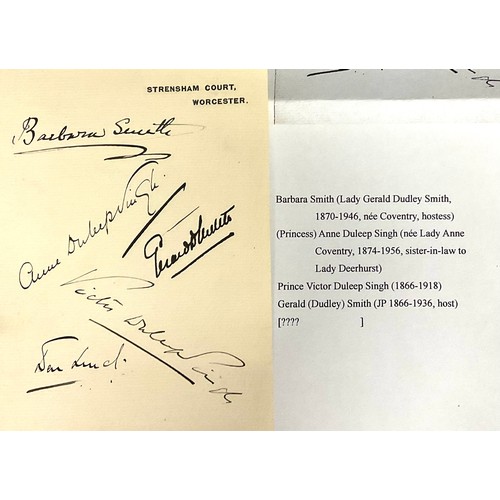 STRENSHAM COURT,
WORCESTER.
Barbara Smith
Anne Duleep Singh.
Gerard Smith
Victor Duleep Singh
Barbara Smith (Lady Gerald Dudley Smith,
1870-1946, née Coventry, hostess)
(Princess) Anne Duleep Singh (née Lady Anne
Coventry, 1874-1956, sister-in-law to
Lady Deerhurst)
Prince Victor Duleep Singh (1866-1918)
Gerald (Dudley) Smith (JP 1866-1936, host)
[???? ]